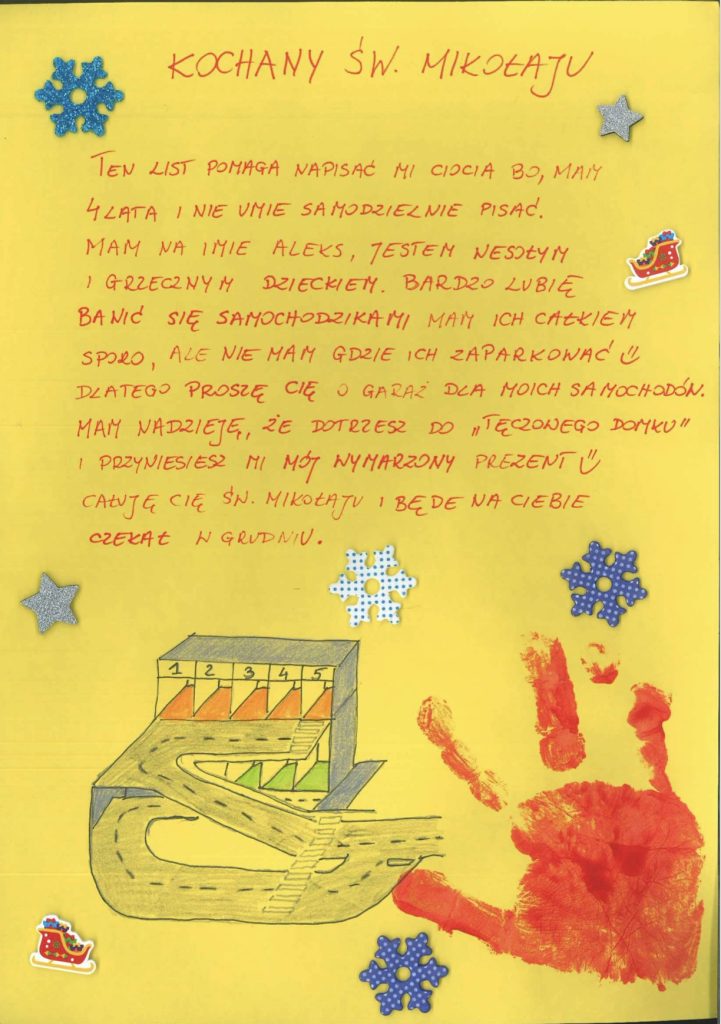 KOCHANY ŚW. MIKOŁAJU
TEN LIST POMAGA NAPISAĆ MI CIOCIA BO, MAM
4 LATA I NIE UMIE SAMODZIELNIE PISAĆ.
MAM NA IMIE ALEKS, JESTEM WESOŁYM
I GRZECZNYM DZIECKIEM. BARDZO LUBIĘ
BAWIĆ SIĘ SAMOCHODZIKAMI MAM ICH CAŁKIEM
SPORO, ALE NIE MAM GDZIE ICH ZAPARKOWAĆ
DLATEGO PROSZĘ CIĘ O GARAŻ DLA MOICH SAMOCHODÓW.
MAM NADZIEJĘ, ŻE DOTRZESZ DO „TĘCZOWEGO DOMKU"
I PRZYNIESIESZ MI MÓJ WYMARZONY PREZENT
CAŁUJĘ CIĘ ŚW. MIKOŁAJU I BĘDE NA CIEBIE
CZEKAŁ W GRUDNIU.
1 2 3 4 5